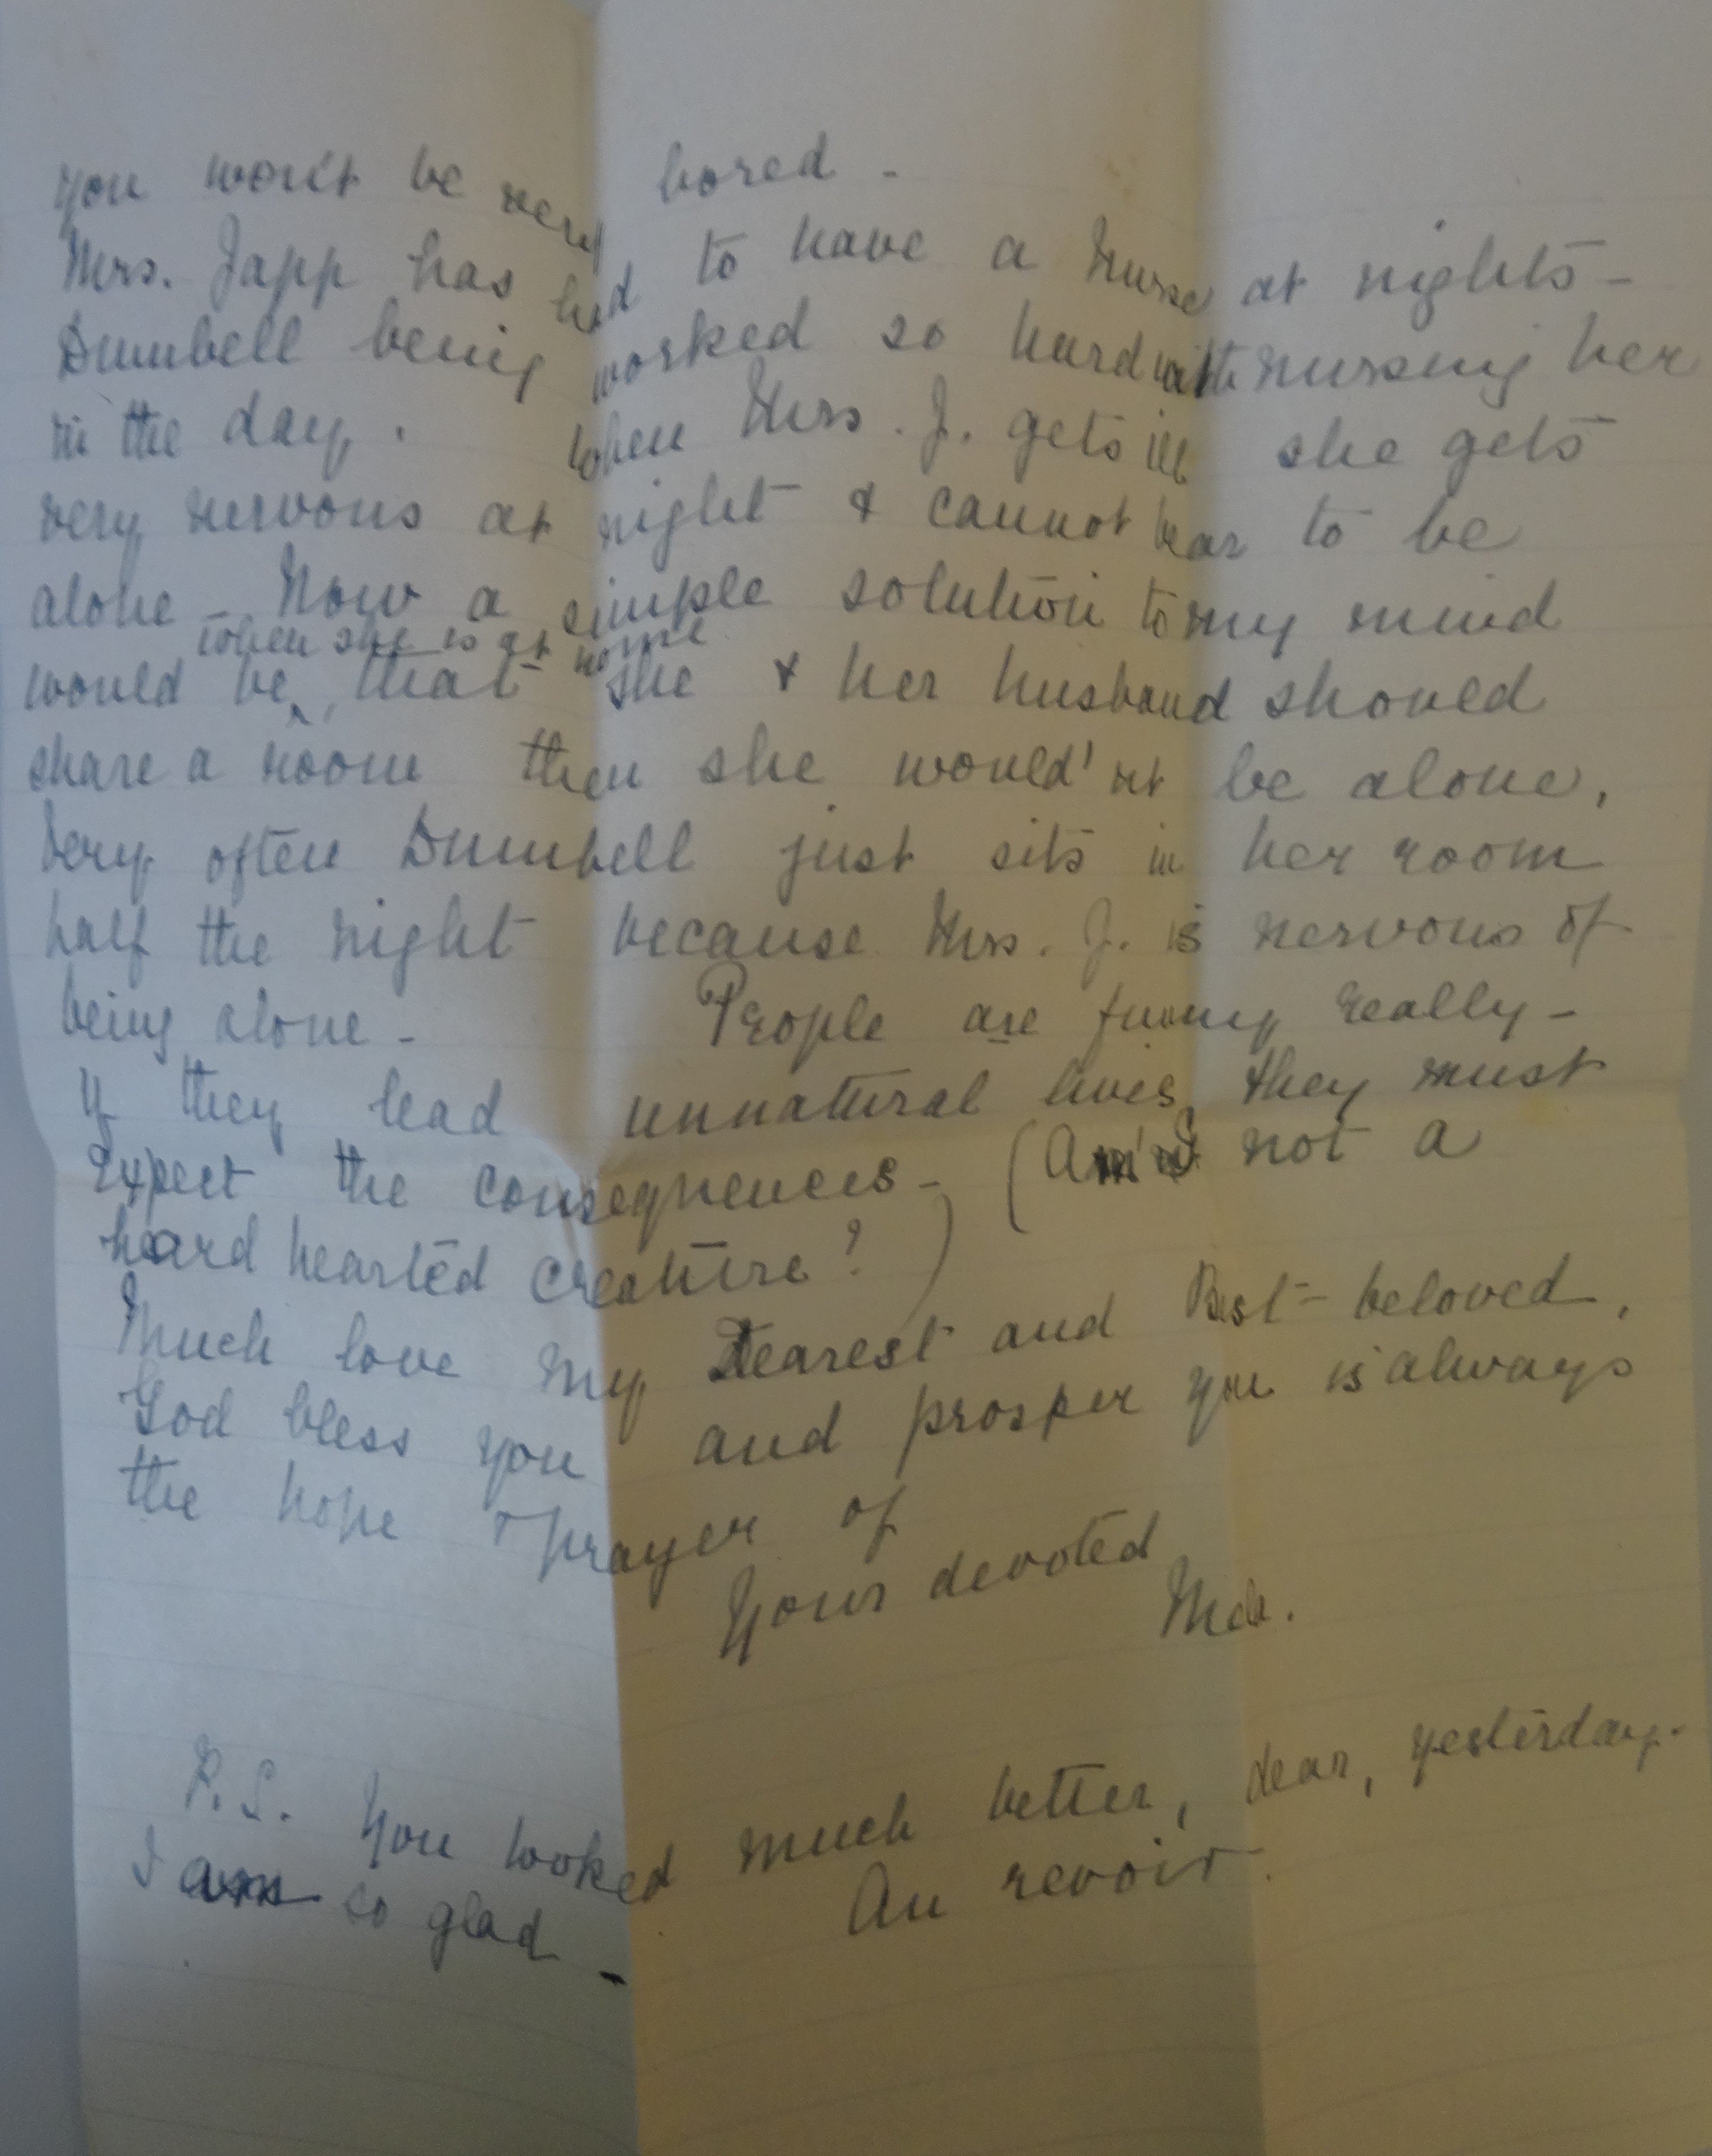 you won't be very bored -
Mrs. Japp has had to have a Nurse at nights -
Dumbell being worked so hard with nursing her
in the day. When Mrs. J. gets ill she gets
very nervous at night & cannot bear to be
alone - Now a simple solution to my mind
when she is at home
would be, that she & her husband should
share a room then she would'nt be alone,
Very often Dumbell just sits in her room
half the night because Mrs. J. is nervous of
being alone - People are funny really -
If they lead unnatural lives, they must
expect the consequences - (Am I not a
hard hearted creature?)
Much love my Dearest and Best-beloved,
God bless you and prosper you is always
the hope & prayer of
Your devoted

P.S. You looked much better, dear, yesterday.
I am so glad - Au revoir.